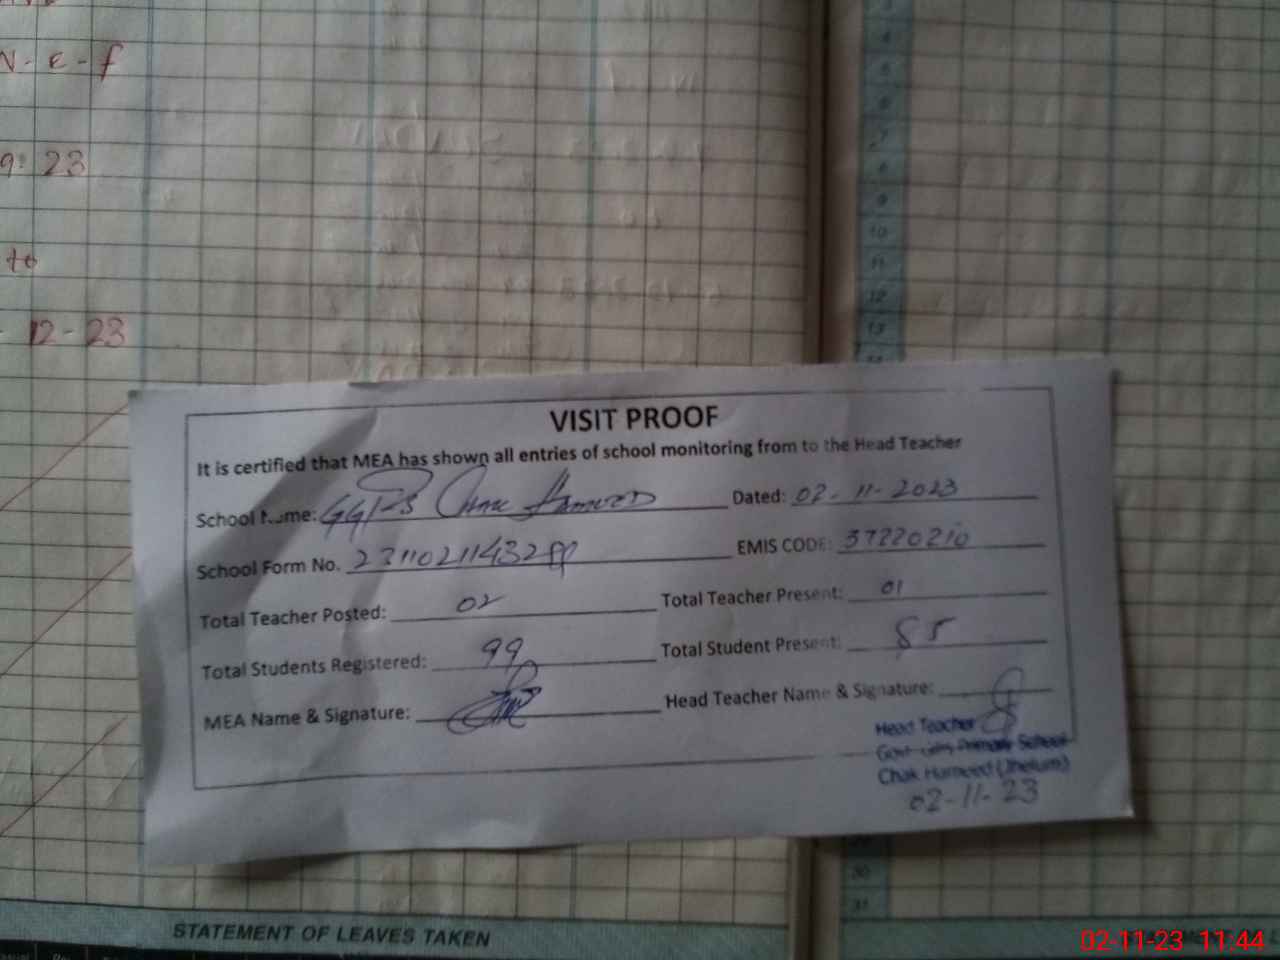 N-e-f
9: 23
to
- 12-23
3
4
5
6
7
8
9
10
11
12
13
VISIT PROOF
It is certified that MEA has shown all entries of school monitoring from to the Head Teacher
School Name: GGPS Chak Hameed Dated: 02-11-2023
School Form No. 2311021143299 EMIS CODE: 37220210
Total Teacher Posted: 02 Total Teacher Present: 01
Total Students Registered: 99 Total Student Present: 85
MEA Name & Signature: Head Teacher Name & Signature:
Head Teacher
Govt Girls Primary School
Chak Hameed (Jhelum)
02-11-23
30
31
STATEMENT OF LEAVES TAKEN
02-11-23 11:44